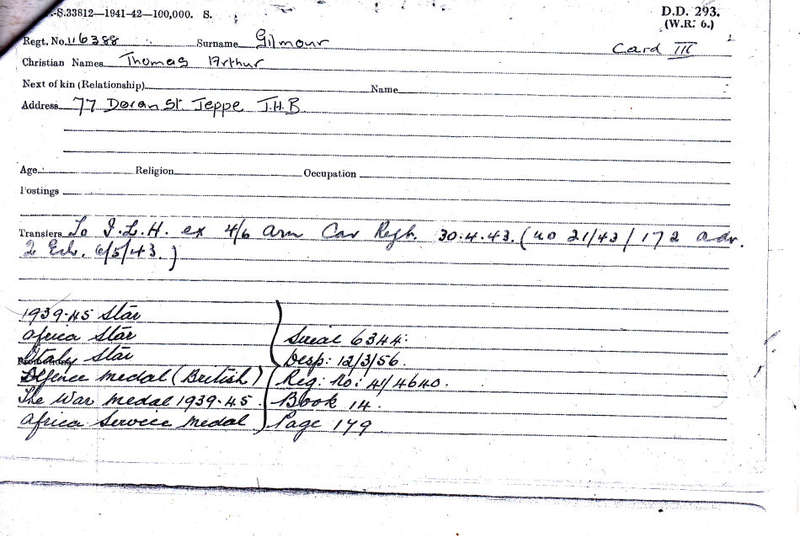 S.33812—1941-42—100,000. S.
D.D. 293.
(W.R. 6.)
Regt. No. 116388 Surname Gilmour
Card III
Christian Names Thomas Arthur
Next of kin (Relationship) Name
Address 77 Doran St. Jeppe J.H.B
Age Religion Occupation
Postings
Transfers To I.L.H. ex 4/6 Arm Car Regt. 30.4.43. (U0 21/43/172 Adv.
2 Ech. 6/5/43.)
1939-45 Star
Africa Star Serial 6344:
Italy Star Desp: 12/3/56.
Defence Medal (British) Reg: No: 41/4640.
The War Medal 1939-45. Book 14.
Africa Service Medal Page 179